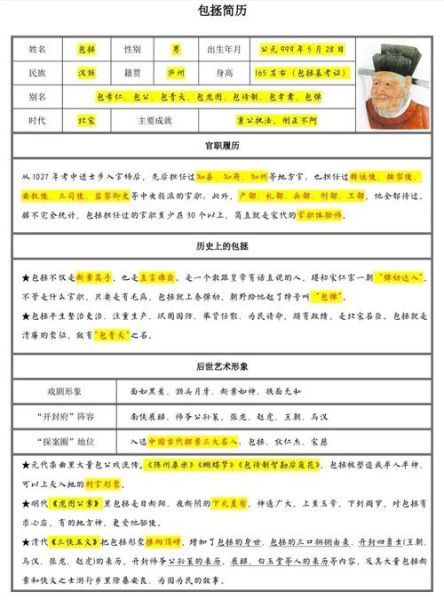 包拯简历
姓名 包拯 性别 男 出生年月 公元 999 年 5 月 28 日
民族 汉族 籍贯 庐州 身高 165 左右(包拯墓考证)
别名 包希仁、包公、包青天、包龙图、包待制、包孝肃、包弹
时代 北宋 主要成就 秉公执法,刚正不阿
官职履历
从 1027 年考中进士步入官场后,先后担任过知县、知府、知州等地方官;也担任过转运使、按察使、
安抚使、三司使、监察御史等中央指派的官职;此外,户部、礼部、兵部、刑部、工部,他全都待过,
据不完全统计,包拯担任过的官职至少在 30 个以上,简直就是宋代的官职体验师。
历史上的包拯
★包拯不仅是断案高手,也是直言谏臣,是一个敢跟皇帝有话直说的人,堪称宋仁宗一朝“弹劾达人”,
不管是什么官职,只要是有毛病,包拯就上奏弹劾,朝野给他起了绰号叫“包弹”。
★包拯平生整治吏治、注重生产、巩固国防、举贤任能、为民请命,颇有政绩,是北宋名臣。包拯就是
清廉的象征,故有“包青天”之名。
后世艺术形象
戏剧形象 面如黑炭、额头月牙、断案如神、铁面无私
“开封府”阵容 南侠展昭、师爷公孙策、张龙、赵虎、王朝、马汉
“探案圈”地位 入选中国古代探案三大名人:包拯、狄仁杰、宋慈
★元代杂曲里大量包公戏流传,《陈州粜米》《蝴蝶梦》《包待制智勘后庭花》,包拯被塑造成半人半神、
可以上天入地的判官形象。
★明代《龙图公案》里包拯是日断阳、夜断阴的下凡星宿,神通广大,上至玉帝,下到阎罗,对包拯有
求必应,有的地方神,更受他驱使。
★清代《三侠五义》把包拯形象推向顶峰,增加了包拯的身世、包拯的三口铡铡由来、开封四勇士(王朝、
马汉、张龙、赵虎)的来历、开封师爷公孙策的来历、展昭、白玉堂等人的来历等内容,及其大量包拯断
案和侠义之士游行乡里除暴安良、为国为民的故事。